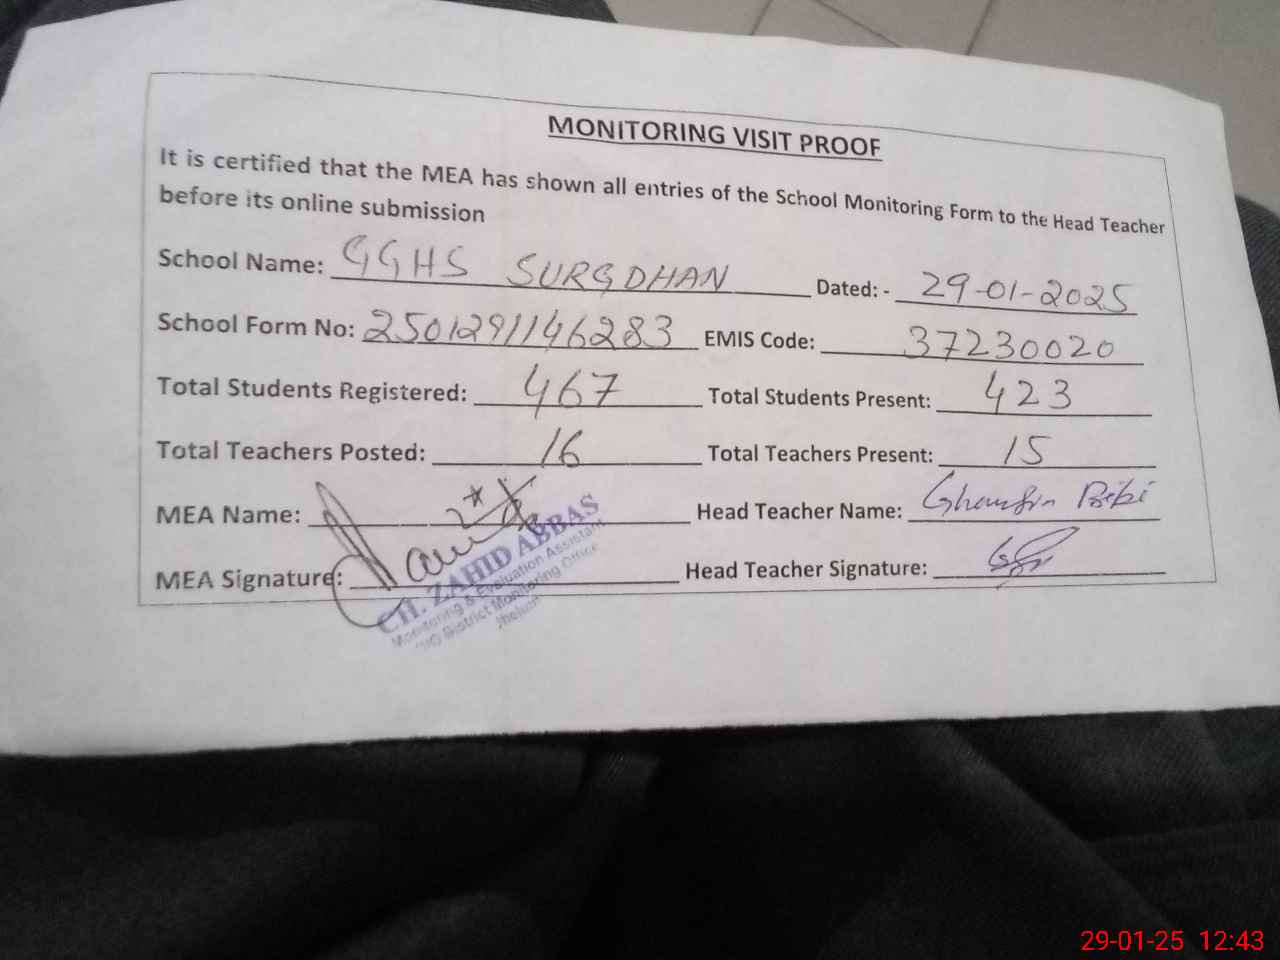 MONITORING VISIT PROOF
It is certified that the MEA has shown all entries of the School Monitoring Form to the Head Teacher
before its online submission
School Name: GGHS SURGDHAN Dated: - 29-01-2025
School Form No: 2501291146283 EMIS Code: 37230020
Total Students Registered: 467 Total Students Present: 423
Total Teachers Posted: 16 Total Teachers Present: 15
MEA Name: Head Teacher Name: Bibi
MEA Signature: Head Teacher Signature:
CH. ZAHID ABBAS
Monitoring & Evaluation Assistant
District Monitoring Office
Jhelum
29-01-25 12:43